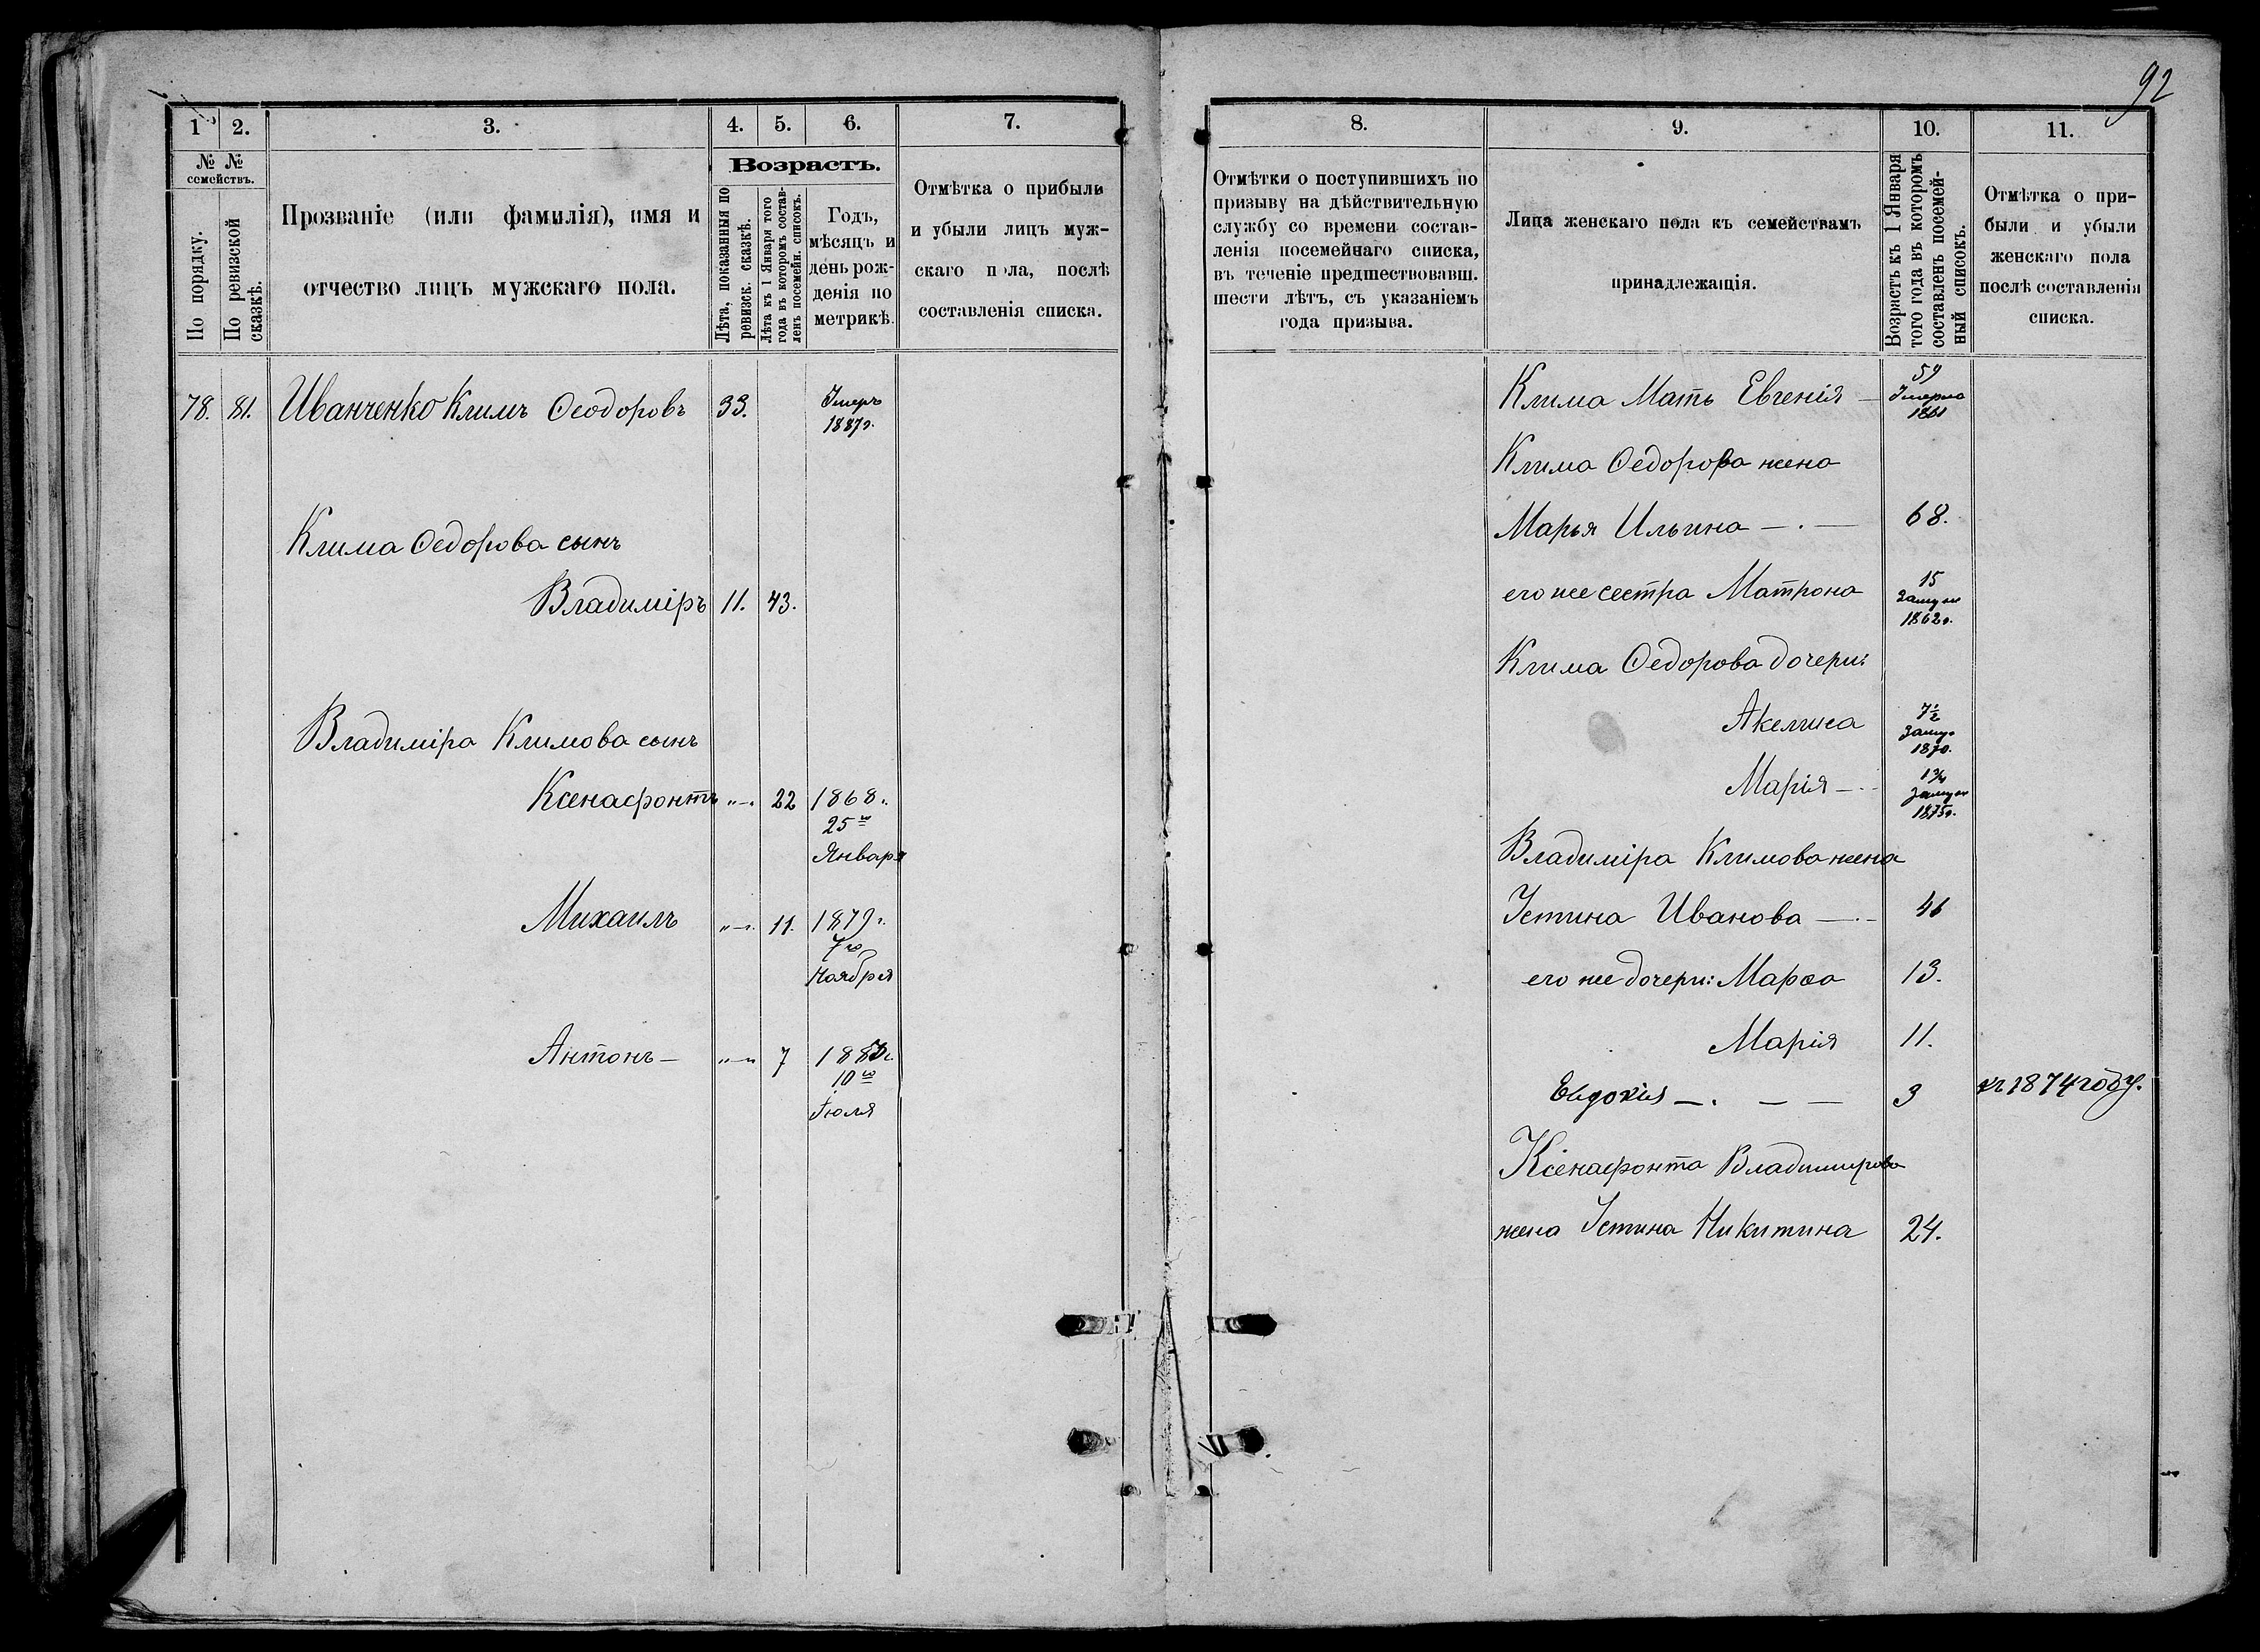 92
1 2. 3. 4. 5. 6. 7.
№ № семействъ.
По порядку.
По ревизской сказкѣ.
Прозваніе (или фамилія), имя и
отчество лицъ мужскаго пола.
Возрастъ.
Лѣта, показанныя по
ревизск. сказкѣ.
Лѣта къ 1 Января того
года въ которомъ состав-
ленъ посемейн. списокъ.
Годъ,
мѣсяцъ и
день рож-
денія по
метрикѣ.
Отмѣтка о прибыли
и убыли лицъ муж-
скаго пола, послѣ
составленія списка.
78. 81. Иванченко Климъ Ѳеодоровъ 33. Умеръ
1887г.
Клима Ѳедорова сынъ
Владиміръ 11. 43.
Владиміра Климова сынъ
Ксенафонтъ „—„ 22 1868г.
25го
Января
Михаилъ „—„ 11. 1879г.
7го
Ноября
Антонъ — „—„ 7 188 г.
10го
Іюля
8. 9. 10. 11.
Отмѣтки о поступившихъ по
призыву на дѣйствительную
службу со времени состав-
ленія посемейнаго списка,
въ теченіе предшествовавш.
шести лѣтъ, съ указаніемъ
года призыва.
Лица женскаго пола къ семействамъ
принадлежащія.
Возрастъ къ 1 Января
того года въ которомъ
составленъ посемей-
ный списокъ.
Отмѣтка о при-
были и убыли
женскаго пола
послѣ составленія
списка.
Клима Мать Евгенія — 59
Умерла
1861
Клима Ѳедорова жена
Марья Ильина — . — 68.
его же сестра Матрона 15
замуж
1862г.
Клима Ѳедорова дочери:
Акелина 7½
замуж
1870.
Марія — . 1¾
замуж
1875г.
Владиміра Климова жена
Устина Иванова — . — 46
его же дочери: Марѳа 13.
Марія 11.
Евдокія — . — — 3 къ 1874 году.
Ксенафонта Владимирова
жена Устина Никитина 24.